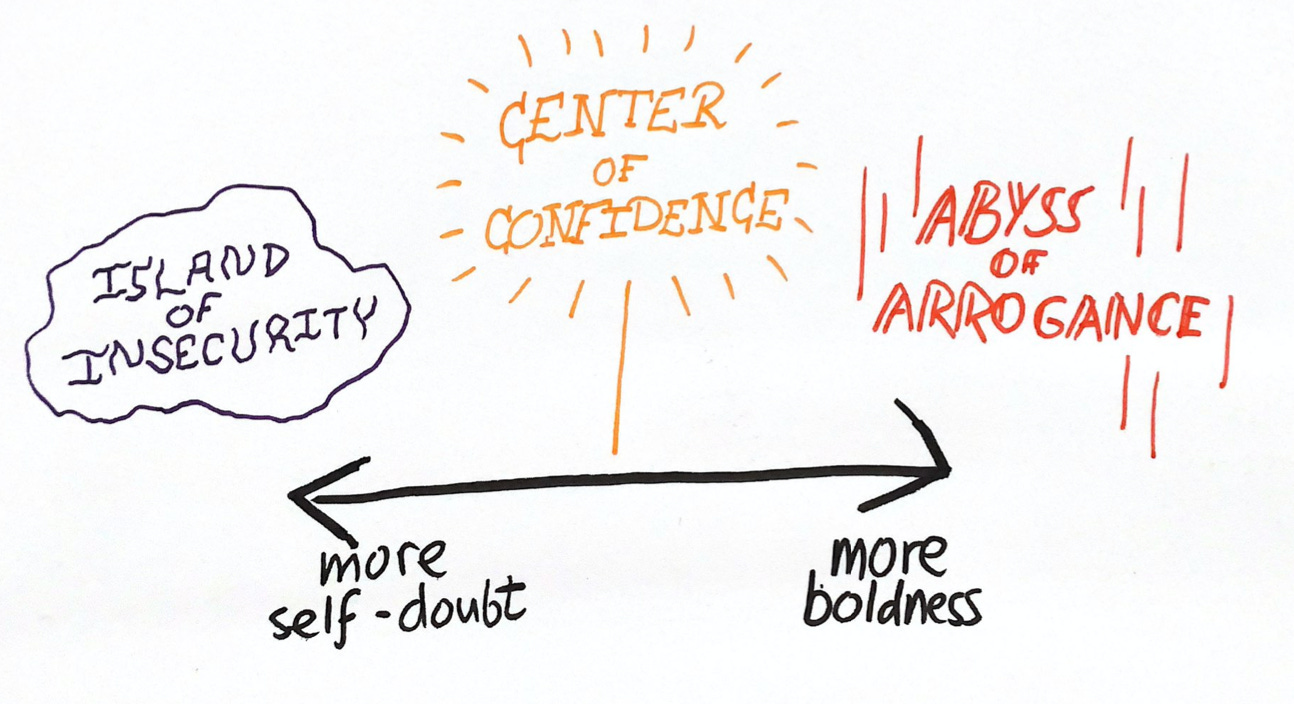 ISLAND
OF
INSECURITY
CENTER
OF
CONFIDENCE
ABYSS
OF
ARROGANCE
more
self-doubt
more
boldness